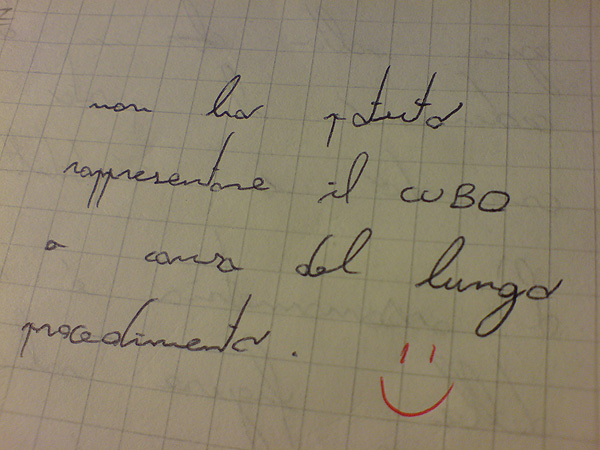 non ho potuto
rappresentare il CUBO
a causa del lungo
procedimento.